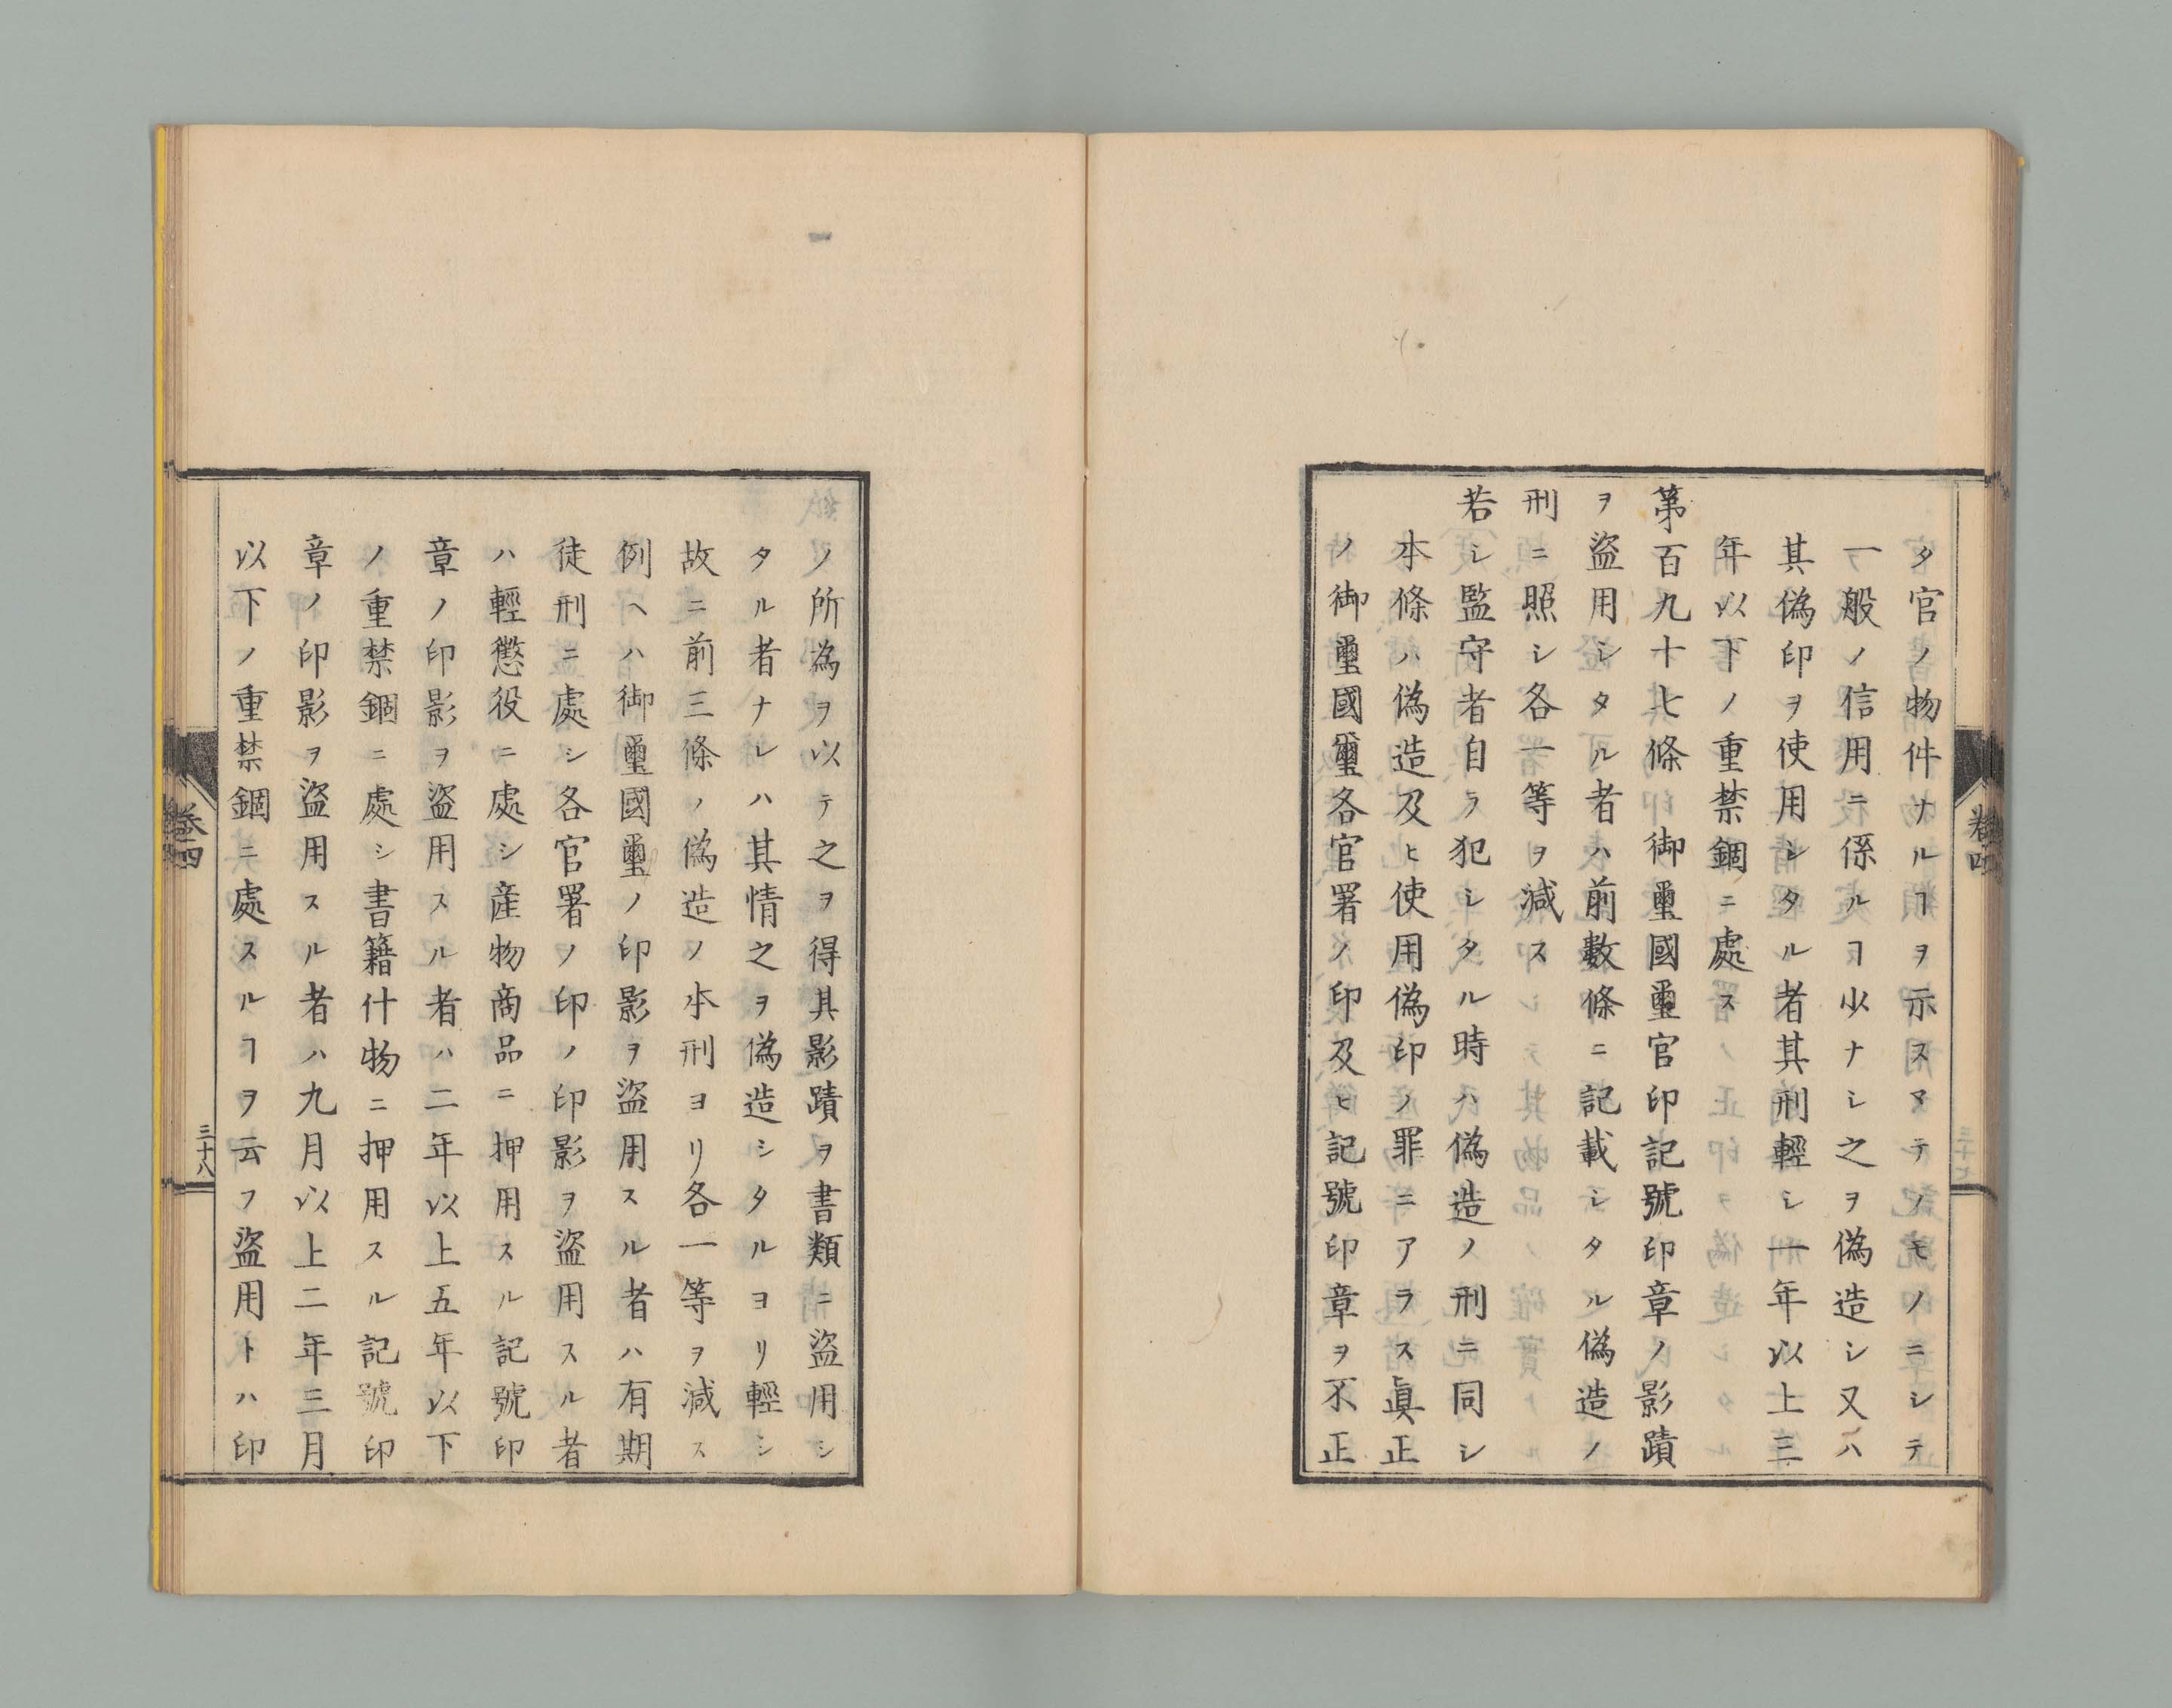 タ官ノ物件ナルヿヲ示スマテノモノニシテ
一般ノ信用ニ係ルヿ少ナシ之ヲ偽造シ又ハ
其偽印ヲ使用シタル者其刑輕シ一年以上三
年以下ノ重禁錮ニ處ス
第百九十七條 御璽國璽官印記號印章ノ影蹟
ヲ盜用シタル者ハ前數條ニ記載シタル偽造ノ
刑ニ照シ各一等ヲ減ス
若シ監守者自ラ犯シタル時ハ偽造ノ刑ニ同シ
本條ハ偽造及ヒ使用偽印ノ罪ニアラス眞正
ノ御璽國璽各官署ノ印及ヒ記號印章ヲ不正
卷四
ノ所為ヲ以テ之ヲ得其影蹟ヲ書類ニ盜用シ
タル者ナレハ其情之ヲ偽造シタルヨリ輕シ
故ニ前三條ノ偽造ノ本刑ヨリ各一等ヲ減ス
例ヘハ御璽國璽ノ印影ヲ盜用スル者ハ有期
徒刑ニ處シ各官署ノ印ノ印影ヲ盜用スル者
ハ輕懲役ニ處シ産物商品ニ押用スル記號印
章ノ印影ヲ盜用スル者ハ二年以上五年以下
ノ重禁錮ニ處シ書籍什物ニ押用スル記號印
章ノ印影ヲ盜用スル者ハ九月以上二年三月
以下ノ重禁錮ニ處スルヿヲ云フ盜用トハ印
卷四
三十八